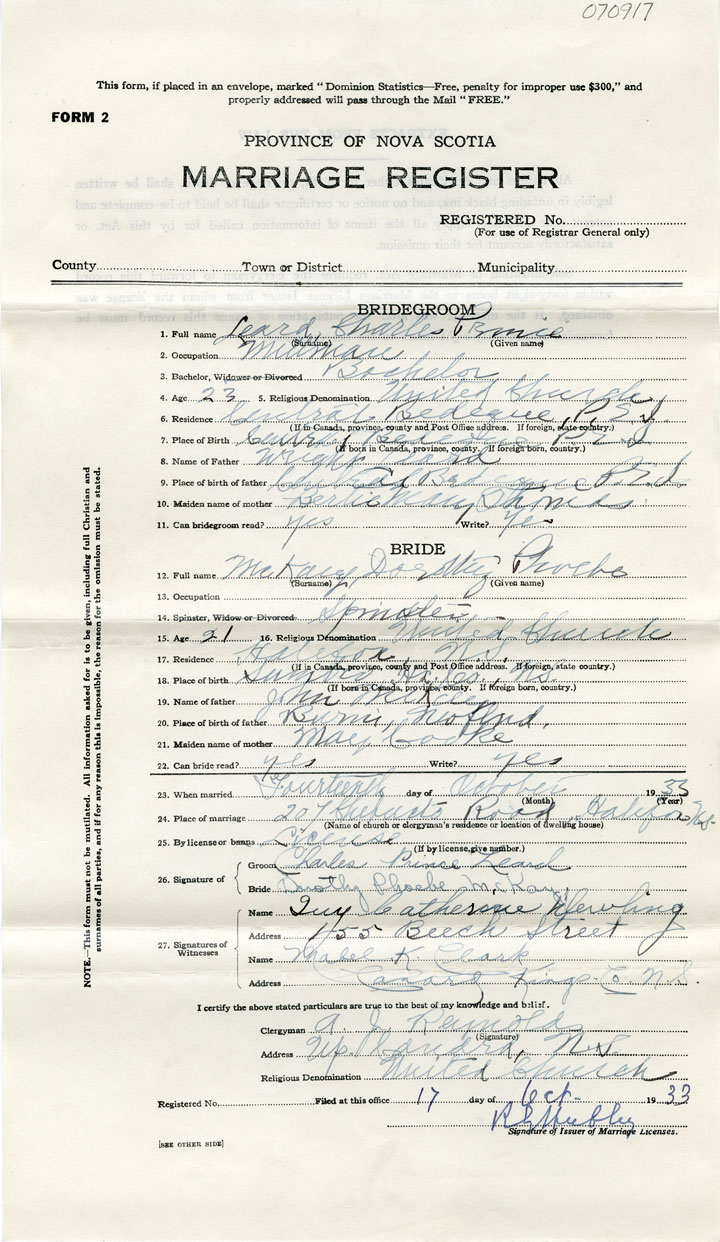 070917
This form, if placed in an envelope, marked "Dominion Statistics—Free, penalty for improper use $300," and
properly addressed will pass through the Mail "FREE."
FORM 2
PROVINCE OF NOVA SCOTIA
MARRIAGE REGISTER
REGISTERED No.
(For use of Registrar General only)
County Town or District Municipality
BRIDEGROOM
1. Full name Leard, Charles Prince
(Surname) (Given name)
2. Occupation Millman
3. Bachelor, Widower or Divorced Bachelor
4. Age 23 5. Religious Denomination United Church
6. Residence Central Bedeque, P.E.I.
(If in Canada, province, county and Post Office address. If foreign, state country.)
7. Place of Birth Central Bedeque P.E.I
(If born in Canada, province, county. If foreign born, country.)
8. Name of Father Wright Leard
9. Place of birth of father Bedeque P.E.I
10. Maiden name of mother Bertie May Thomas
11. Can bridegroom read? yes Write? Yes
BRIDE
12. Full name McKay, Dorothy Phoebe
(Surname) (Given name)
13. Occupation
14. Spinster, Widow or Divorced Spinster
15. Age 21 16. Religious Denomination United Church
17. Residence Halifax, N.S.
(If in Canada, province, county and Post Office address. If foreign, state country.)
18. Place of birth Hx. Co., N.S.
(If born in Canada, province, county. If foreign born, country.)
19. Name of father John McKay
20. Place of birth of father Burin, Nfld.
21. Maiden name of mother May Cooke
22. Can bride read? yes Write? yes
23. When married Fourteenth day of October 1933
(Month) (Year)
24. Place of marriage 207 Road, Halifax N.S.
(Name of church or clergyman's residence or location of dwelling house)
25. By license or banns License
(If by license, give number.)
26. Signature of
Groom Charles Prince Leard
Bride Dorothy Phoebe McKay
27. Signatures of Witnesses
Name Catherine
Address 155 Beech Street
Name Mabel K. Clark
Address Canard Kings Co N.S.
I certify the above stated particulars are true to the best of my knowledge and belief.
Clergyman A. J.
(Signature)
Address Up. N.S
Religious Denomination United Church
Registered No. Filed at this office 17 day of Oct- 1933
Signature of Issuer of Marriage Licenses.
[SEE OTHER SIDE]
NOTE.—This form must not be mutilated. All information asked for is to be given, including full Christian and
surnames of all parties, and if for any reason this is impossible, the reason for the omission must be stated.